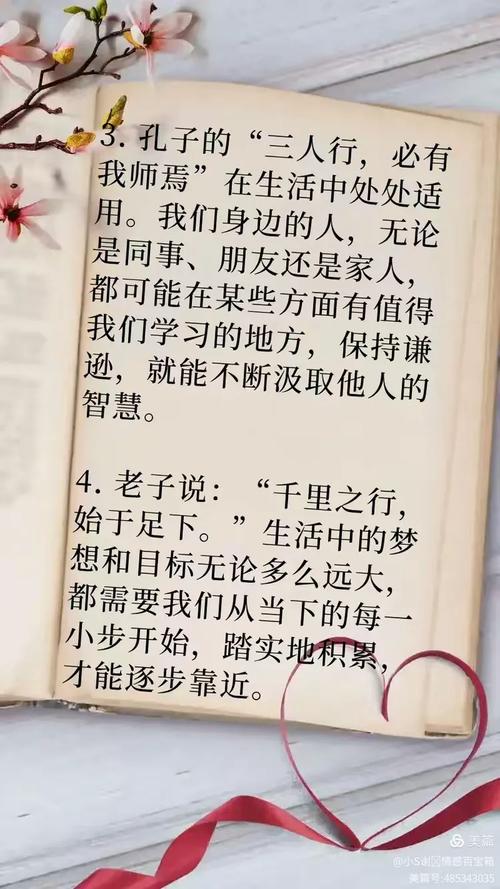 3. 孔子的“三人行，必有
我师焉”在生活中处处适
用。我们身边的人，无论
是同事、朋友还是家人，
都可能在某些方面有值得
我们学习的地方，保持谦
逊，就能不断汲取他人的
智慧。
4. 老子说：“千里之行，
始于足下。”生活中的梦
想和目标无论多么远大，
都需要我们从当下的每一
小步开始，踏实地积累，
才能逐步靠近。
美篇
@小S谢情感百宝箱
美篇号:485343035